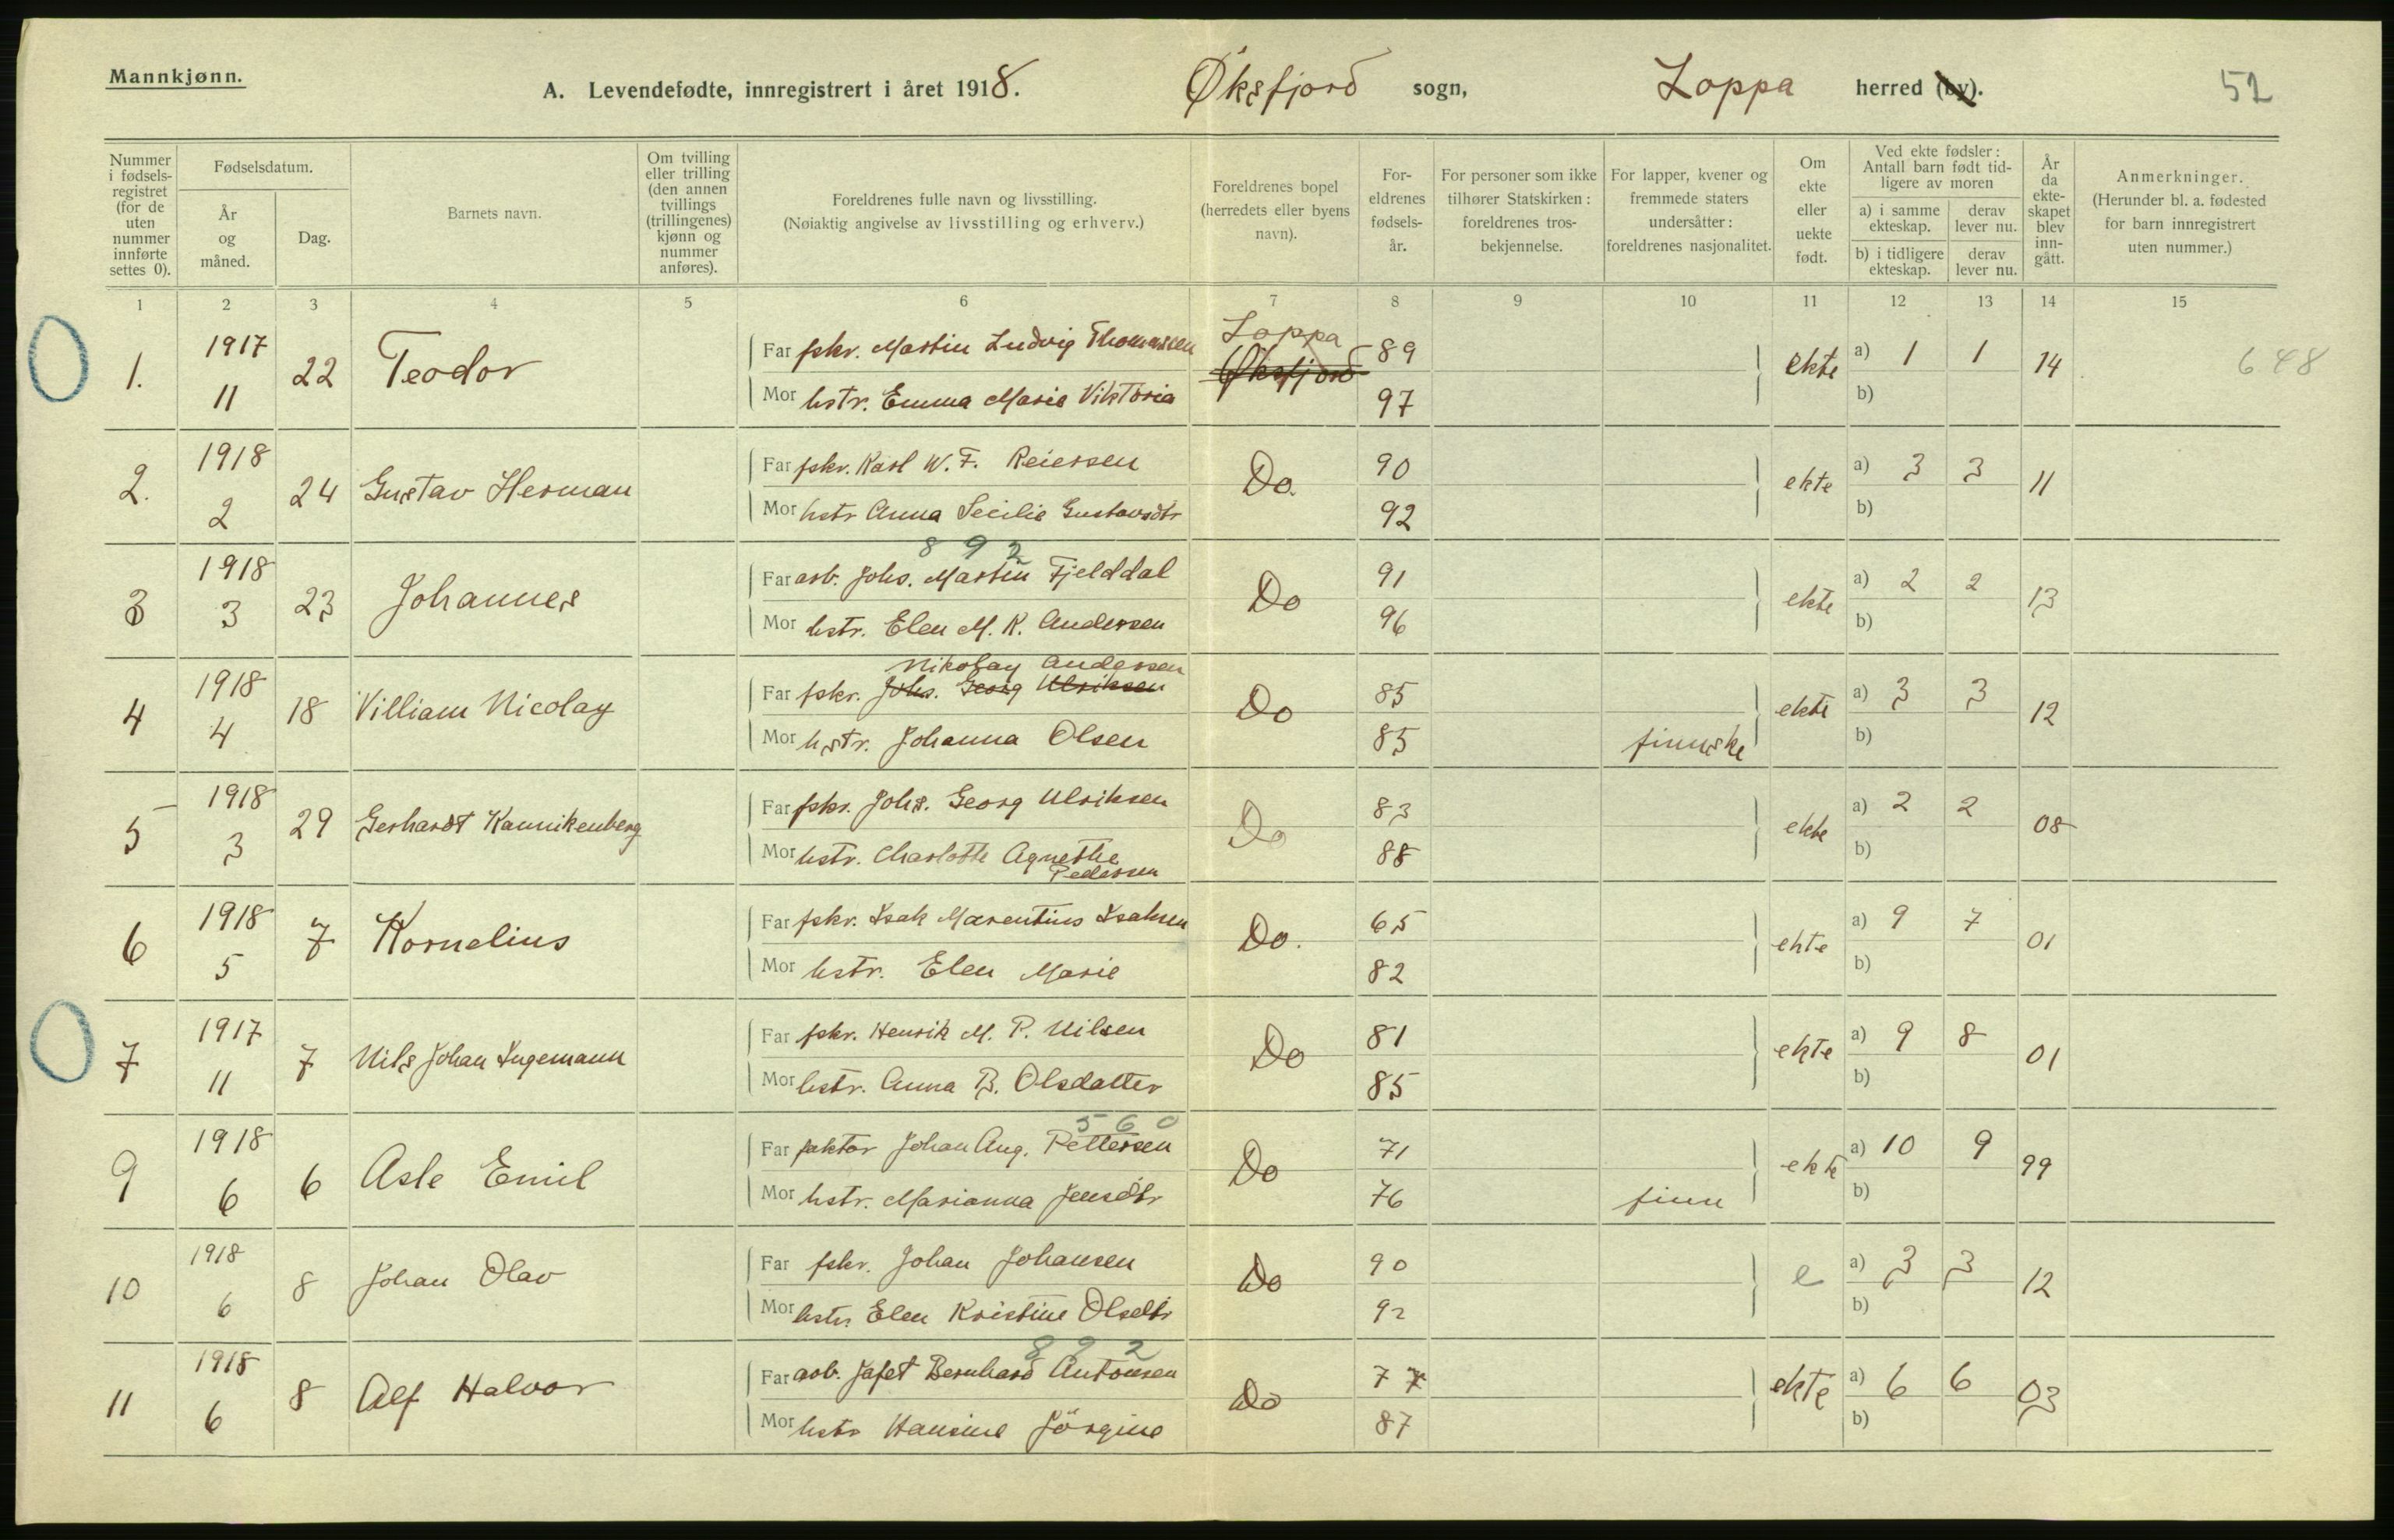 Mannkjønn.
A. Levendefødte, innregistrert i året 1918. Øksfjord sogn, Loppa herred (by). 52
Nummer i fødselsregistret (for de uten nummer innførte settes 0).
Fødselsdatum.
År og måned.
Dag.
Barnets navn.
Om tvilling eller trilling (den annen tvillings (trillingenes) kjønn og nummer anføres).
Foreldrenes fulle navn og livsstilling.
(Nøiaktig angivelse av livsstilling og erhverv.)
Foreldrenes bopel (herredets eller byens navn).
Foreldrenes fødselsår.
For personer som ikke tilhører Statskirken: foreldrenes trosbekjennelse.
For lapper, kvener og fremmede staters undersåtter: foreldrenes nasjonalitet.
Om ekte eller uekte født.
Ved ekte fødsler: Antall barn født tidligere av moren
a) i samme ekteskap. derav lever nu.
b) i tidligere ekteskap. derav lever nu.
År da ekteskapet blev inngått.
Anmerkninger.
(Herunder bl. a. fødested for barn innregistrert uten nummer.)
1 2 3 4 5 6 7 8 9 10 11 12 13 14 15
1. 1917 11 22 Teodor Far fskr. Martin Ludvig Thomassen Loppa Øksfjord 89 ekte a) 1 1 14 648
Mor hstr. Emma Marie Viktoria 97 b)
2. 1918 2 24 Gustav Herman Far fskr. Karl W. F. Reiersen Do. 90 ekte a) 3 3 11
Mor hstr Anna Secilie Gustavsdtr 92 b)
892
3 1918 3 23 Johannes Far arb. Johs. Martin Fjelddal Do 91 ekte a) 2 2 13
Mor hstr. Elen M. K. Andersen 96 b)
Nikolay Andersen
4 1918 4 18 Villiam Nicolay Far fskr. Johs. Georg Ulriksen Do 85 ekte a) 3 3 12
Mor hstr. Johanna Olsen 85 finnske b)
5 1918 3 29 Gerhardt Kannikenberg Far fskr. Johs. Georg Ulriksen Do 83 ekte a) 2 2 08
Mor hstr. Charlotte Agnethe Pedersen 88 b)
6 1918 5 7 Kornelius Far fskr. Isak Marentius Isaksen Do. 65 ekte a) 9 7 01
Mor hstr. Elen Marie 82 b)
7 1917 11 7 Nils Johan Ingemann Far fskr. Henrik M. P. Nilsen Do 81 ekte a) 9 8 01
Mor hstr. Anna B. Olsdatter 85 b)
560
9 1918 6 6 Asle Emil Far faktor Johan Aug. Pettersen Do 71 ekte a) 10 9 99
Mor hstr. Marianna Jensdtr 76 finn b)
10 1918 6 8 Johan Olav Far fskr. Johan Johansen Do 90 e a) 3 3 12
Mor hstr. Elen Kristine Olsdtr 92 b)
892
11 1918 6 8 Alf Halvor Far arb. Jafet Bernhard Antonsen Do 77 ekte a) 6 6 03
Mor hstr Hansine Jörgine 87 b)